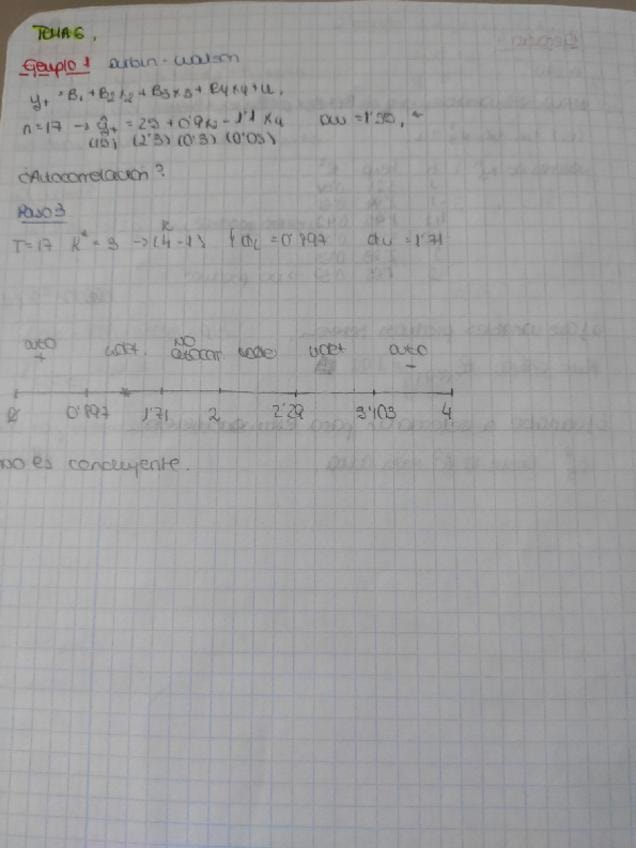 TEMA 6.
Ejemplo 1 Durbin-Watson
yt = B1 + B2 x2 + B3 x3 + B4 x4 + u.
n=17 → ŷt = 25 + 0'9 x2 - 1'1 x4 DW = 1'50,
(10) (2'3) (0'3) (0'03)
¿Autocorrelación?
Paso 3
T=17 K* = 3 → (4-1) dL = 0'897 du = 1'71
auto + NO autocorr auto -
0 0'897 1'71 2 2'29 3'103 4
no es concluyente.